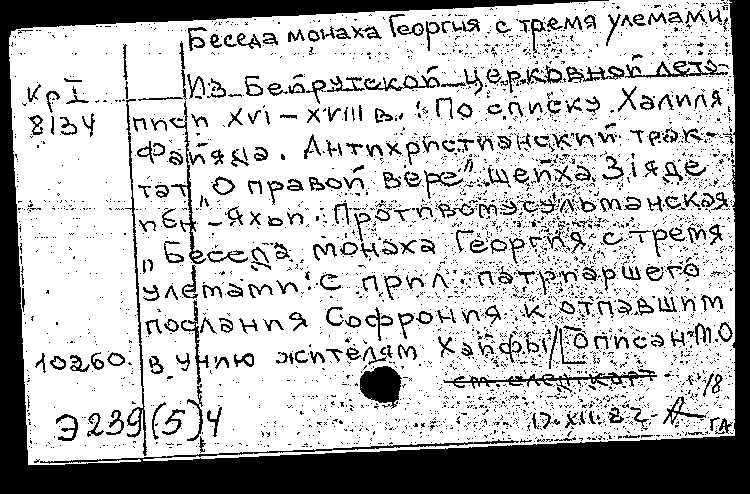 Беседа монаха Георгия с тремя улемами.
Из Бейрутской церковной лето-
Кр I
8134
писи XVI – XVIII в. : По списку Халиля
Файяда. Антихристианский трак-
тат „О правой вере" шейха Зіяде
ибн-Яхьи. Противомусульманская
„Беседа монаха Георгия с тремя
улемами" с прил. патриаршего
послания Софрония к отпавшим
10260. в унию жителям Хайфы/[Описан. М.О.
см след карт
/8
Э 239(5)4
17.XII.82
ГА